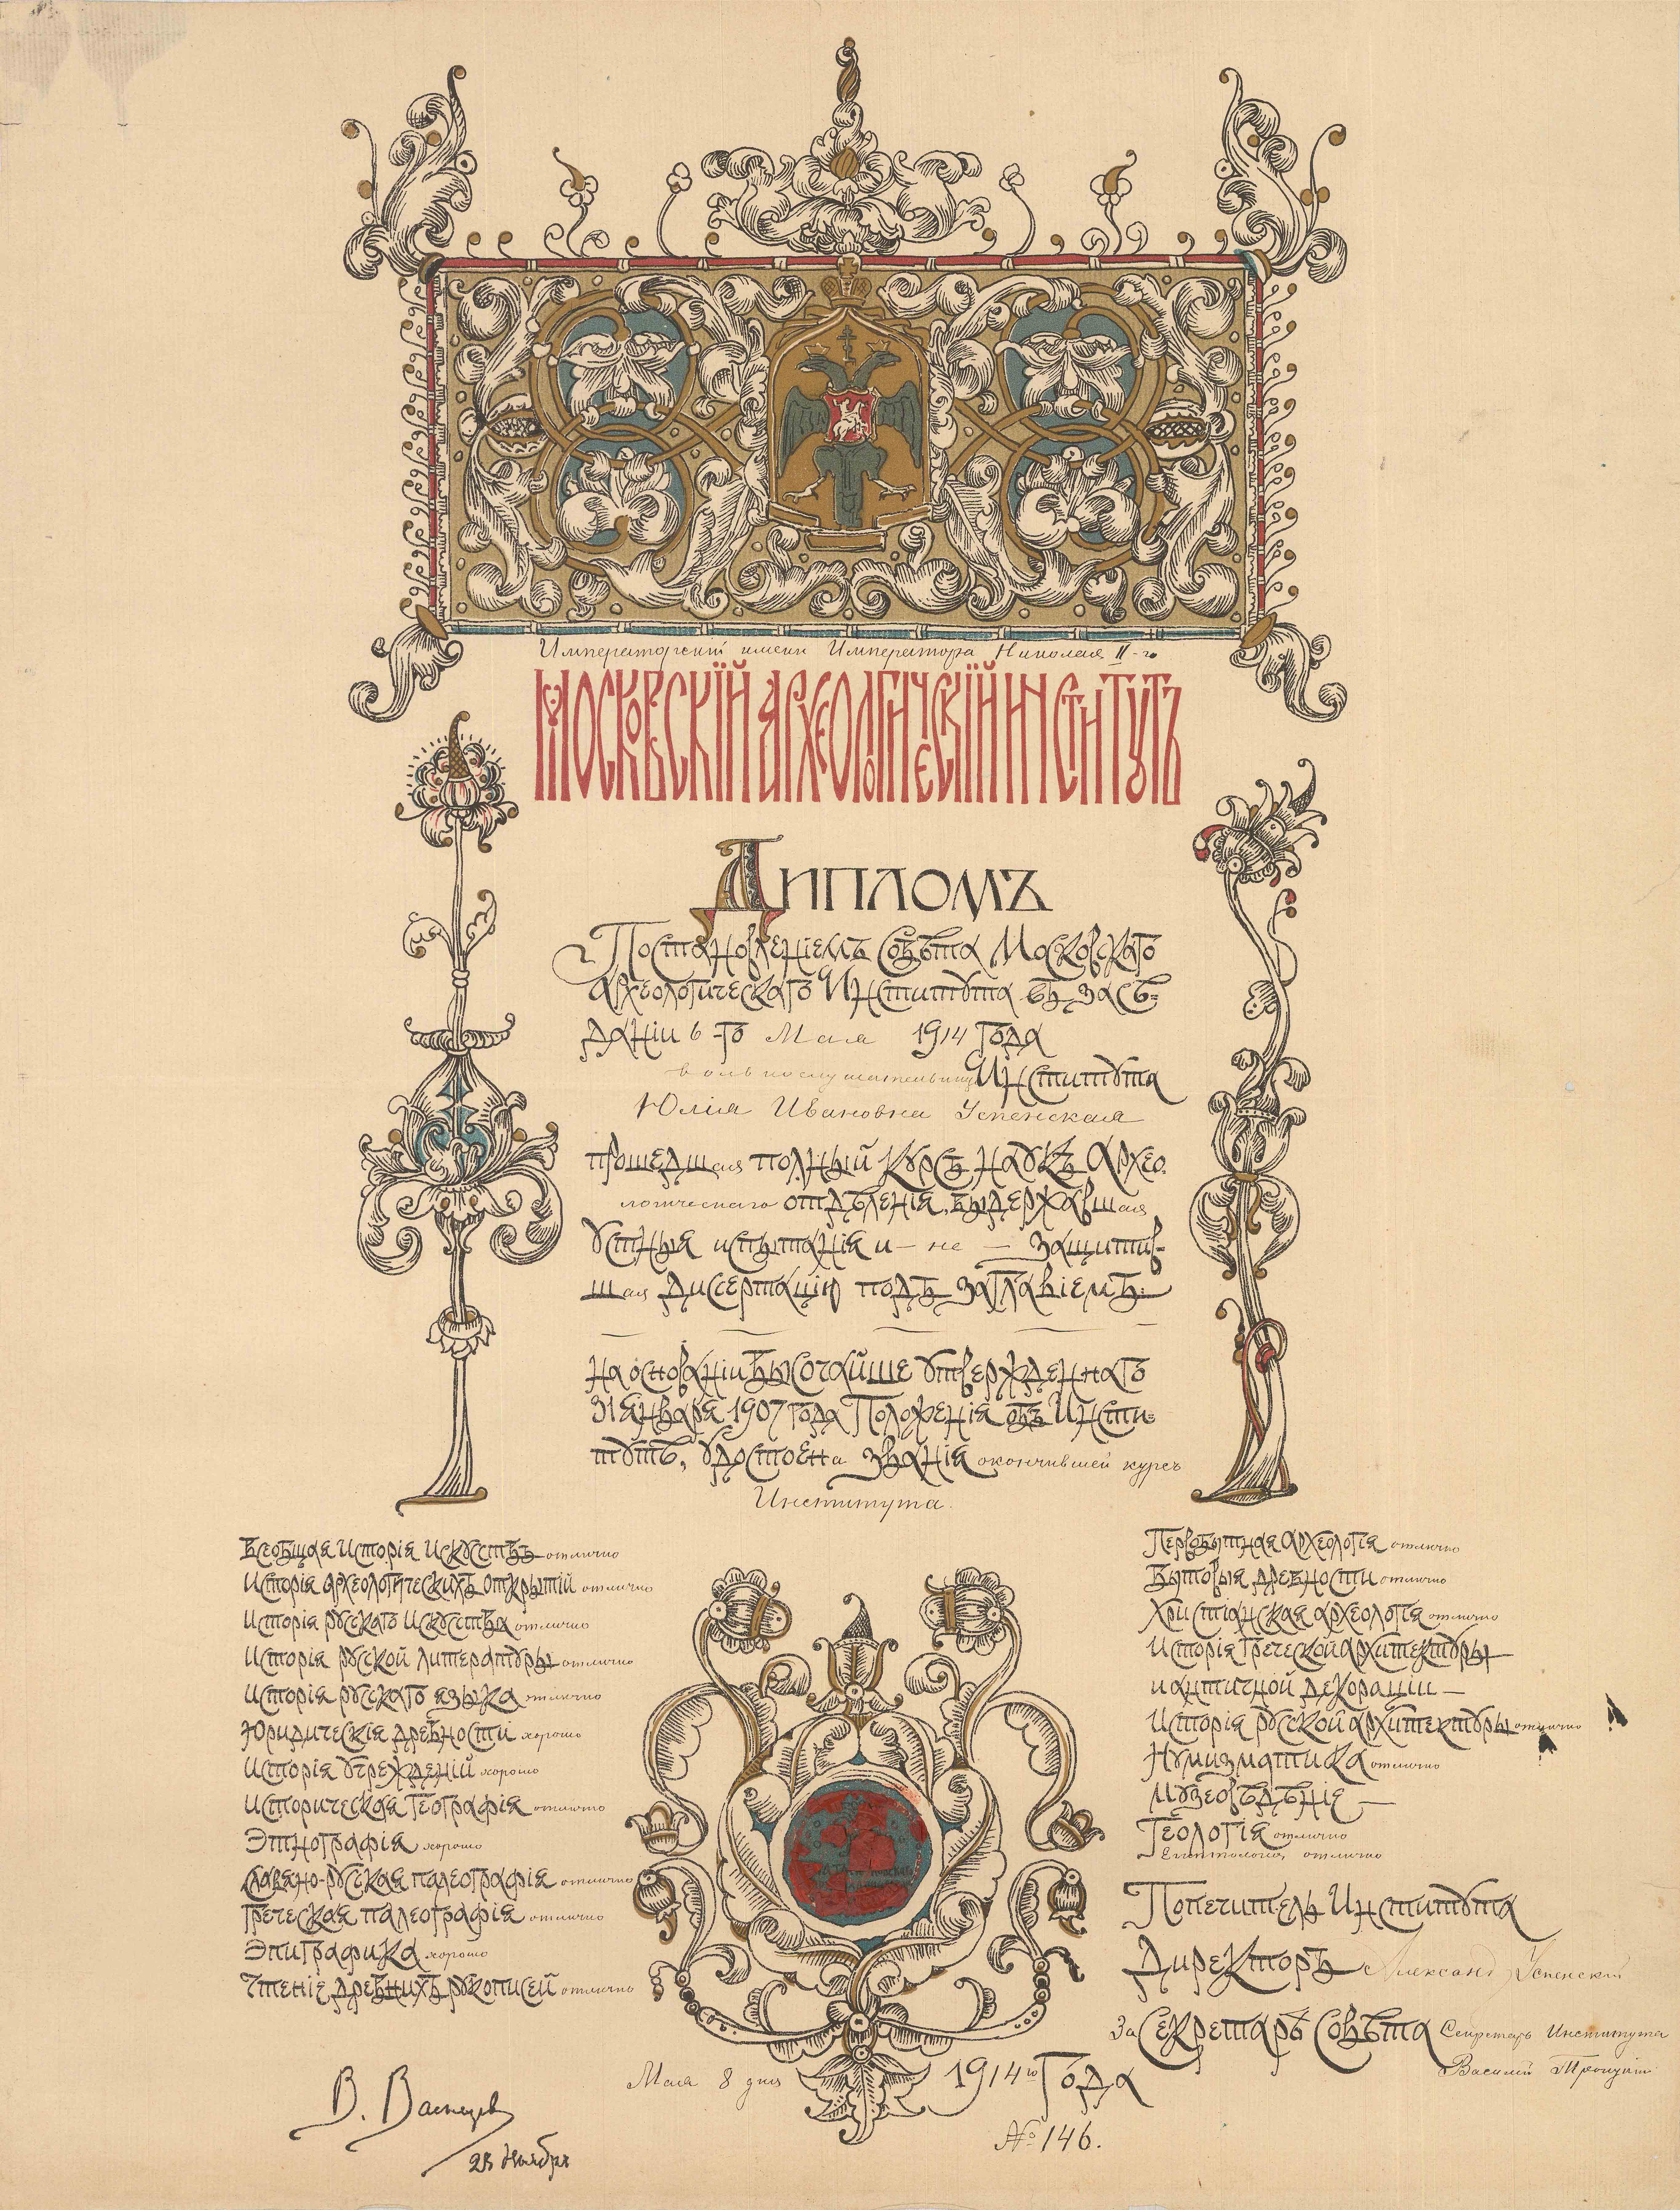 Императорскій имени Императора Николая II-го
Московскій Археологическій Институтъ
Дипломъ
Постановленіемъ Совѣта Московскаго
Археологическаго Института въ засѣ-
даніи 6-го Мая 1914 года
вольнослушательница Института
Юлія Ивановна Успенская
прошедшая полный курсъ наукъ Архео-
логическаго отдѣленія, выдержавшая
устныя испытанія и — не — защитив-
шая диссертацію подъ заглавіемъ:
на основаніи Высочайше утвержденнаго
31 января 1907 года Положенія объ Инсти-
тутѣ, удостоена званія окончившей курсъ
Института.
Всеобщая Исторія Искусствъ отлично
Исторія археологическихъ открытій отлично
Исторія русскаго Искусства отлично
Исторія русской литературы отлично
Исторія русскаго языка отлично
Юридическія древности хорошо
Исторія учрежденій хорошо
Историческая географія отлично
Этнографія хорошо
Славяно-русская палеографія отлично
Греческая палеографія отлично
Эпиграфика хорошо
Чтеніе древнихъ рукописей отлично
Первобытная Археологія отлично
Бытовыя древности отлично
Христіанская археологія отлично
Исторія Греческой архитектуры
и античной декораціи —
Исторія русской архитектуры отлично
Нумизматика отлично
Музеовѣдѣніе —
Геологія отлично
Египтологія отлично
Попечитель Института
Директоръ Александр Успенскій
За Секретарь Совѣта Секретарь Института
Василій Троицкій
Мая 8 дня 1914 го Года
№ 146.
В. Васнецов
23 Ноября